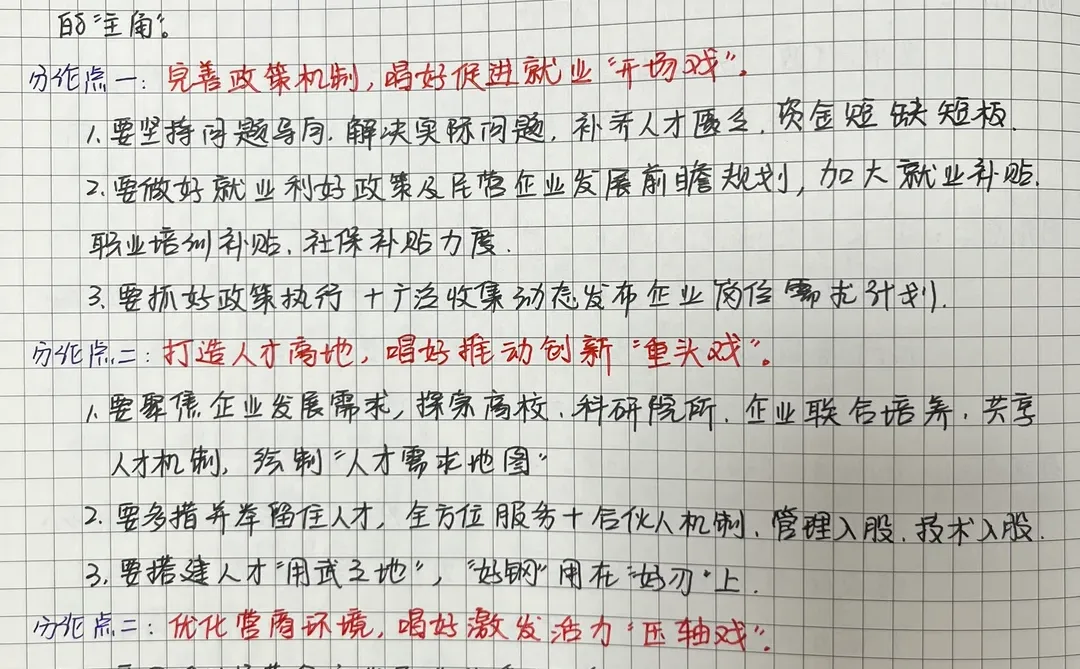 的“主角”。
分论点一：完善政策机制，唱好促进就业“开场戏”。
1.要坚持问题导向、解决实际问题，补齐人才匮乏、资金短缺短板.
2.要做好就业利好政策及民营企业发展前瞻规划，加大就业补贴、
职业培训补贴、社保补贴力度.
3.要抓好政策执行＋广泛收集动态发布企业岗位需求计划.
分论点二：打造人才高地，唱好推动创新“重头戏”。
1.要聚焦企业发展需求，探索高校、科研院所、企业联合培养、共享
人才机制，绘制“人才需求地图”
2.要多措并举留住人才，全方位服务＋合伙人机制、管理入股、技术入股.
3.要搭建人才“用武之地”，“好钢”用在“好刃”上.
分论点二：优化营商环境，唱好激发活力“压轴戏”。